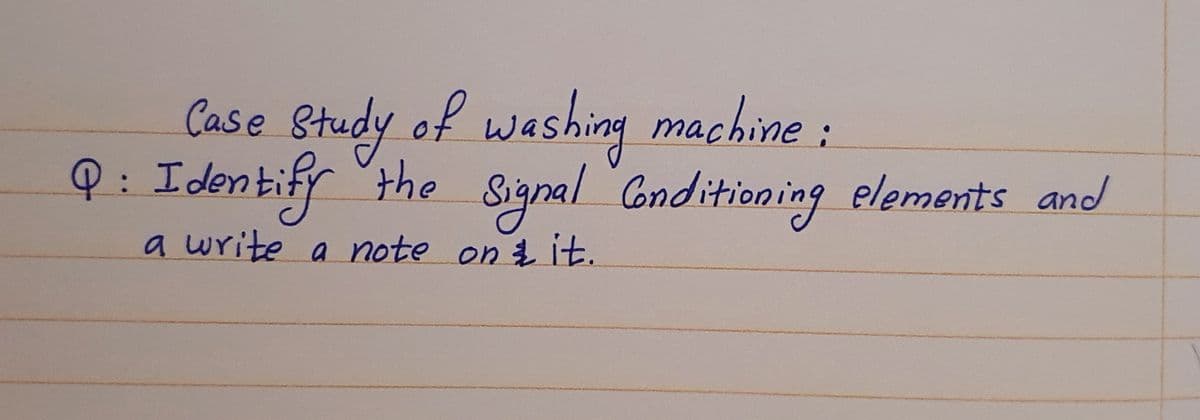 Case Study of washing machine :
Q : Identify the Signal Conditioning elements and
a write a note on it.